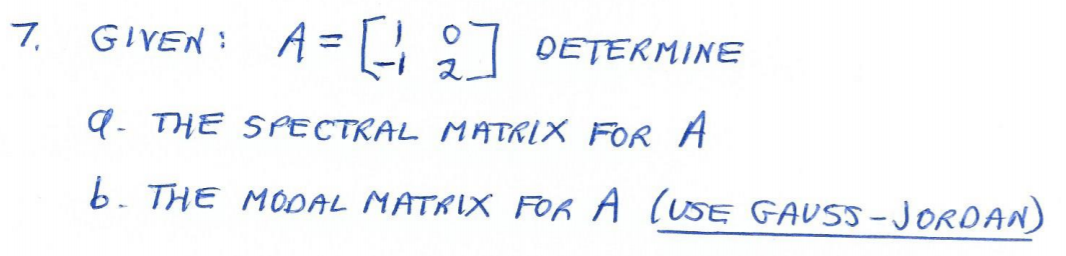 7. GIVEN: A = [1 0 -1 2] DETERMINE
a. THE SPECTRAL MATRIX FOR A
b. THE MODAL MATRIX FOR A (USE GAUSS-JORDAN)